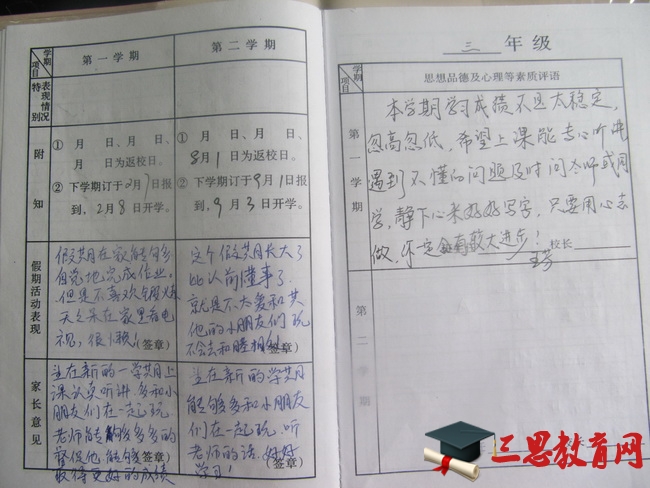 学期
项目
第一学期
第二学期
特别
表现情况
附
知
① 月 日、 月
日为返校日。
② 下学期订于2月7日报
到，2月8日开学。
① 月 日、 月
8月1日为返校日。
② 下学期订于9月1日报
到，9月3日开学。
假期活动表现
假期在家能够
自觉地完成作业，
但是不喜欢锻炼
天天呆在家里看电
视，很懒！(签章)
这个假期长大了
比以前懂事了
就是不太爱和其
他的小朋友们玩
(签章)
家长意见
望在新的一学期上
课认真听讲.多和小
朋友们在一起玩.
老师能够多多的
督促他.能够(签章)
取得更好的成绩
望在新的学期
能够多和小朋友
们在一起玩.听
老师的话.好好
学习！(签章)
三 年级
学期
项目
思想品德及心理等素质评语
第一学期
本学期学习成绩不是太稳定，
忽高忽低，希望上课能专心听讲
遇到不懂的问题及时问老师或同
学，静下心来好好写字，只要用心去
做，你定会有较大进步！
校长
王芳
第二学期
长
三思教育网